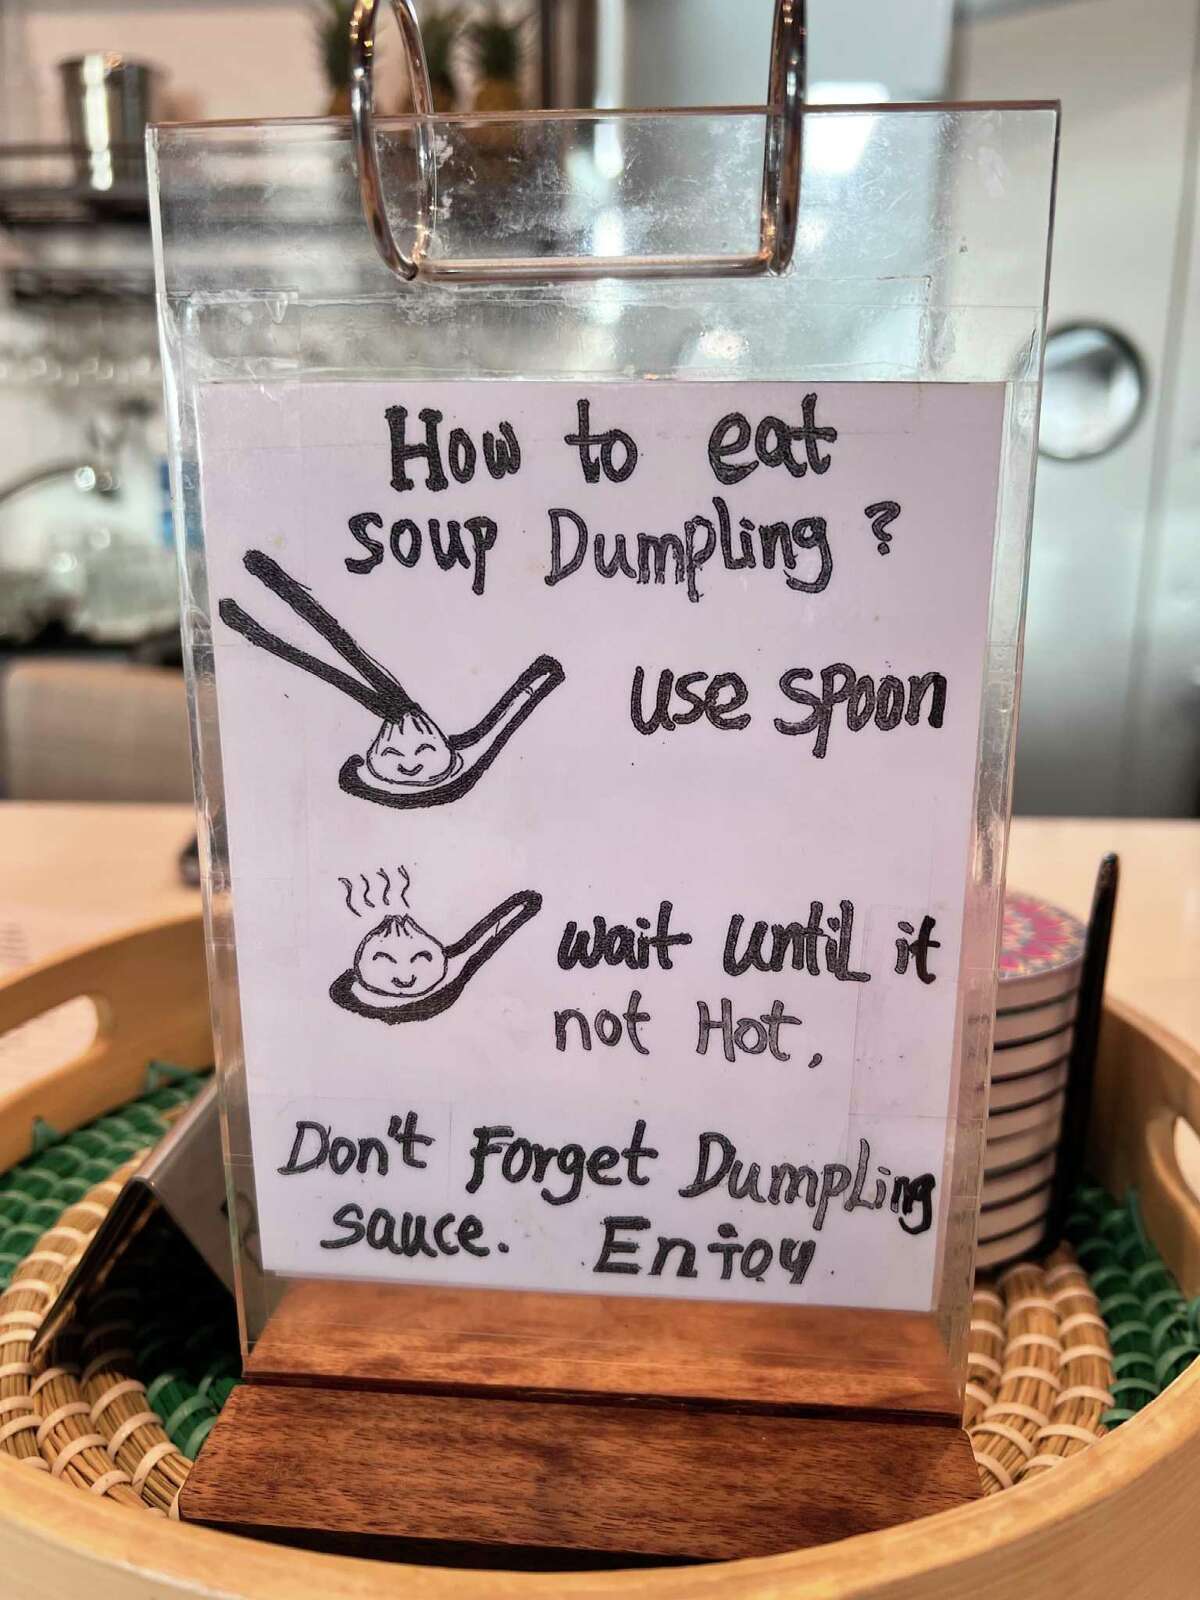 How to eat
soup Dumpling ?
use spoon
wait until it
not Hot,
Don't Forget Dumpling
sauce. Enjoy